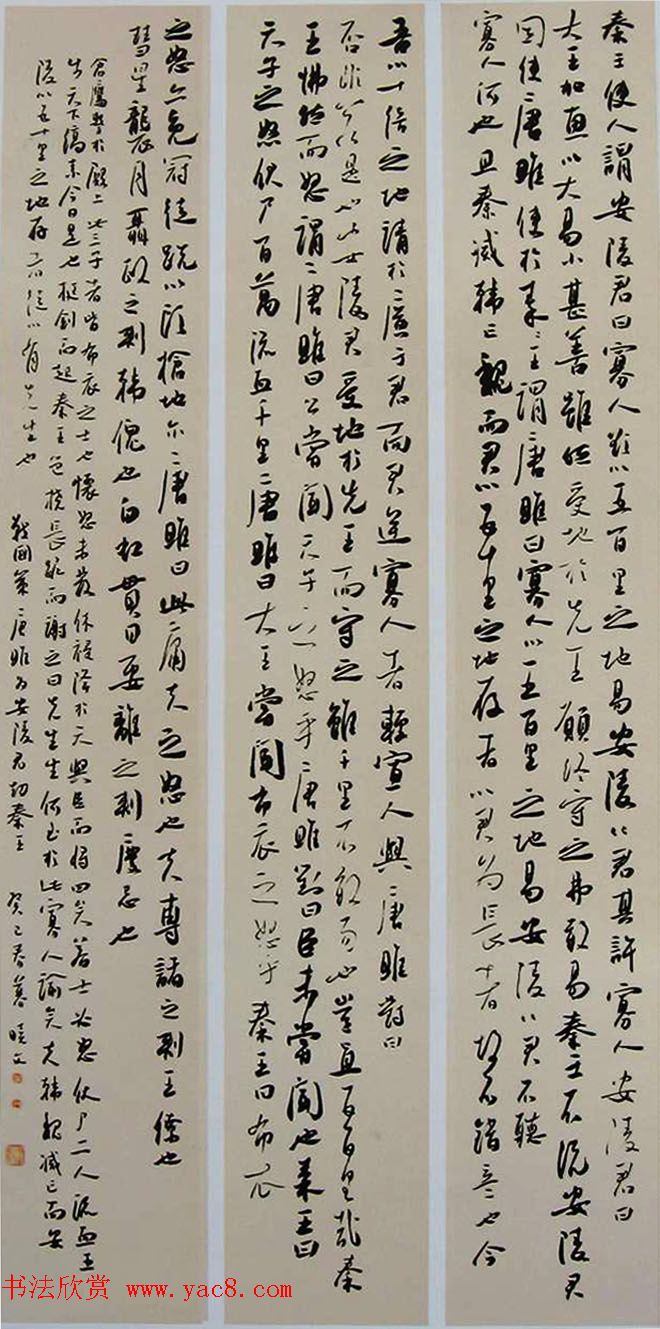 秦王使人謂安陵君曰寡人欲以五百里之地易安陵安陵君其許寡人安陵君曰
大王加惠以大易小甚善雖然受地於先王願終守之弗敢易秦王不說安陵君
因使唐雎使於秦秦王謂唐雎曰寡人以五百里之地易安陵安陵君不聽
寡人何也且秦滅韓亡魏而君以五十里之地存者以君為長者故不錯意也今
吾以十倍之地請於廣于君而君逆寡人者輕寡人與唐雎對曰
否非若是也安陵君受地於先王而守之雖千里不敢易也豈直五百里哉秦
王怫然而怒謂唐雎曰公嘗聞天子之怒乎唐雎對曰臣未嘗聞也秦王曰
天子之怒伏尸百萬流血千里唐雎曰大王嘗聞布衣之怒乎秦王曰布衣
之怒亦免冠徒跣以頭搶地爾唐雎曰此庸夫之怒也夫專諸之刺王僚也
彗星襲月聶政之刺韓傀也白虹貫日要離之刺慶忌也
倉鷹擊於殿上此三子者皆布衣之士也懷怒未發休祲降於天與臣而將四矣若士必怒伏尸二人流血五
步天下縞素今日是也挺劍而起秦王色撓長跪而謝之曰先生坐何至於此寡人諭矣夫韓魏滅亡而安
陵以五十里之地存者徒以有先生也
戰國策唐雎為安陵君劫秦王 癸巳春暮曉文
书法欣赏 www.yac8.com